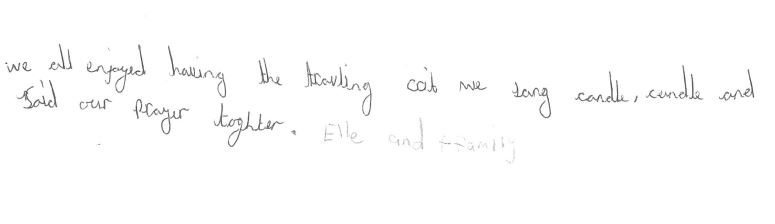 we all enjoyed having the travling cot we sang candle, candle and
said our prayer toghter. Elle and family